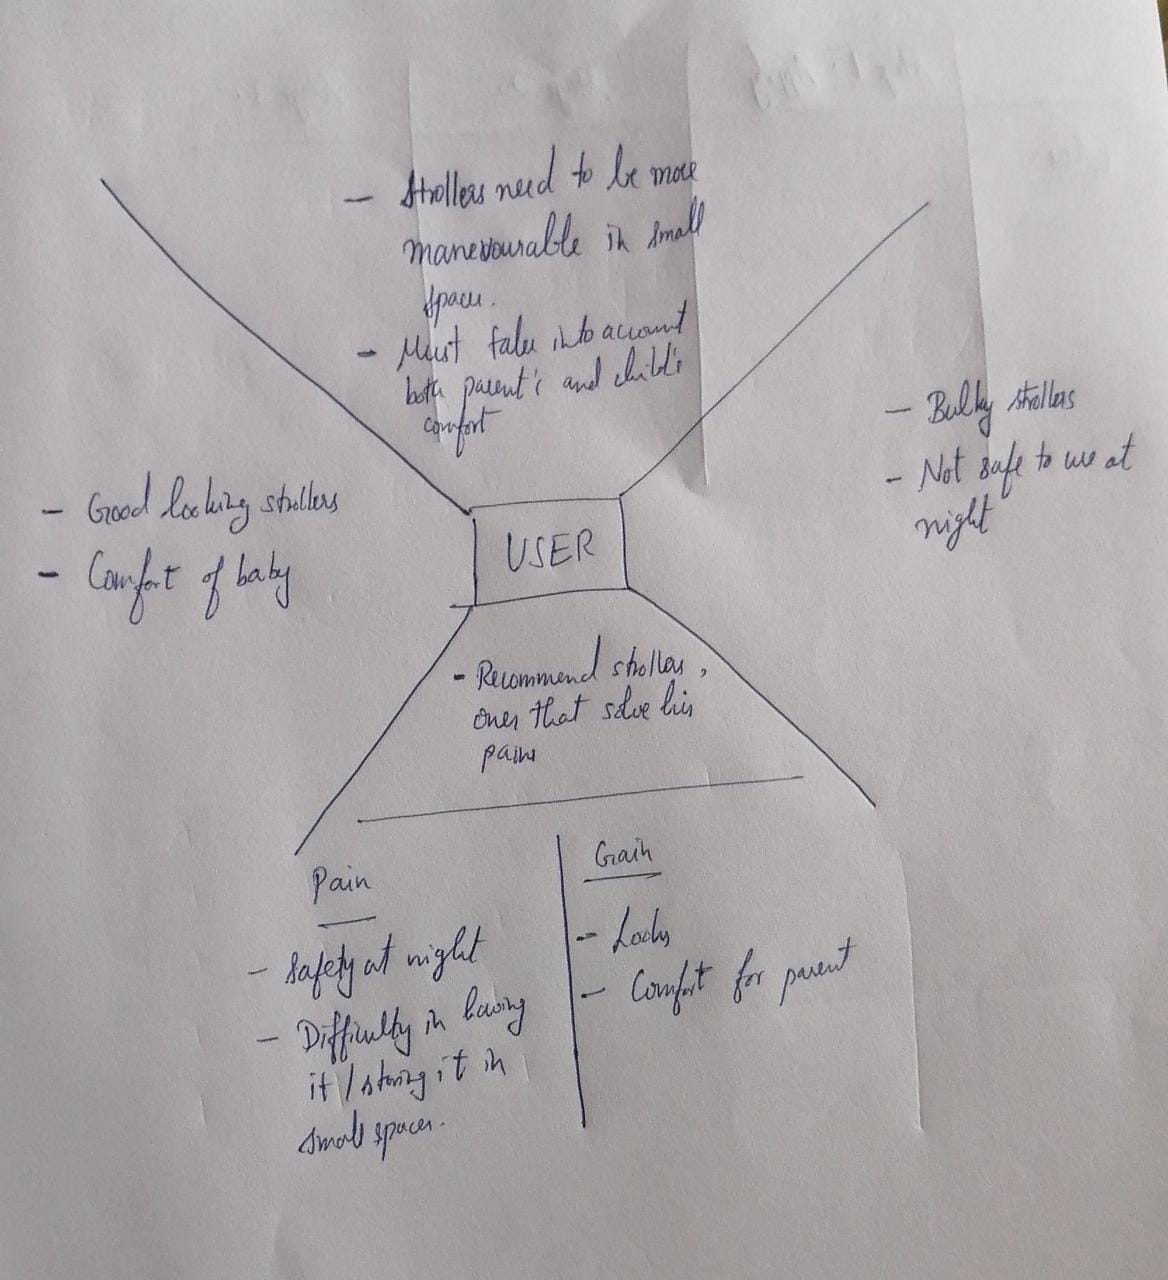 - Strollers need to be more
manevourable in small
spaces.
- Must take into account
both parent's and child's
comfort
- Bulky strollers
- Not safe to use at
night
- Good looking strollers
- Comfort of baby
USER
- Recommend strollers,
ones that solve his
pains
Pain
- Safety at night
- Difficulty in having
it / storing it in
small spaces.
Gain
- Looks
- Comfort for parent